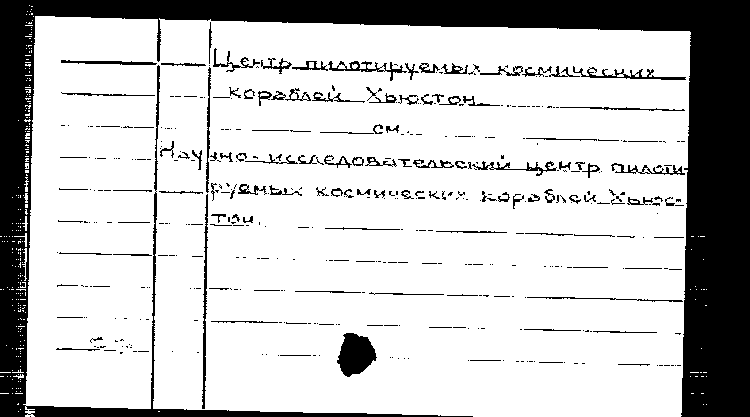 Центр пилотируемых космических
кораблей Хьюстон
см.
Научно-исследовательский центр пилоти-
руемых космических кораблей Хьюс-
тон.